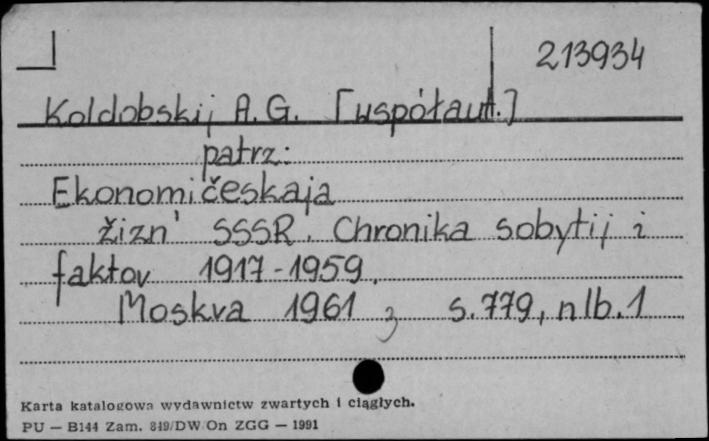 213934
Koldobskij A.G. [współaut.]
patrz:
Ekonomičeskaja
žizn' SSSR. Chronika sobytij i
faktov 1917-1959.
Moskva 1961 s.779, nlb.1
Karta katalogowa wydawnictw zwartych i ciągłych.
PU — B144 Zam. 849/DW/On ZGG — 1991